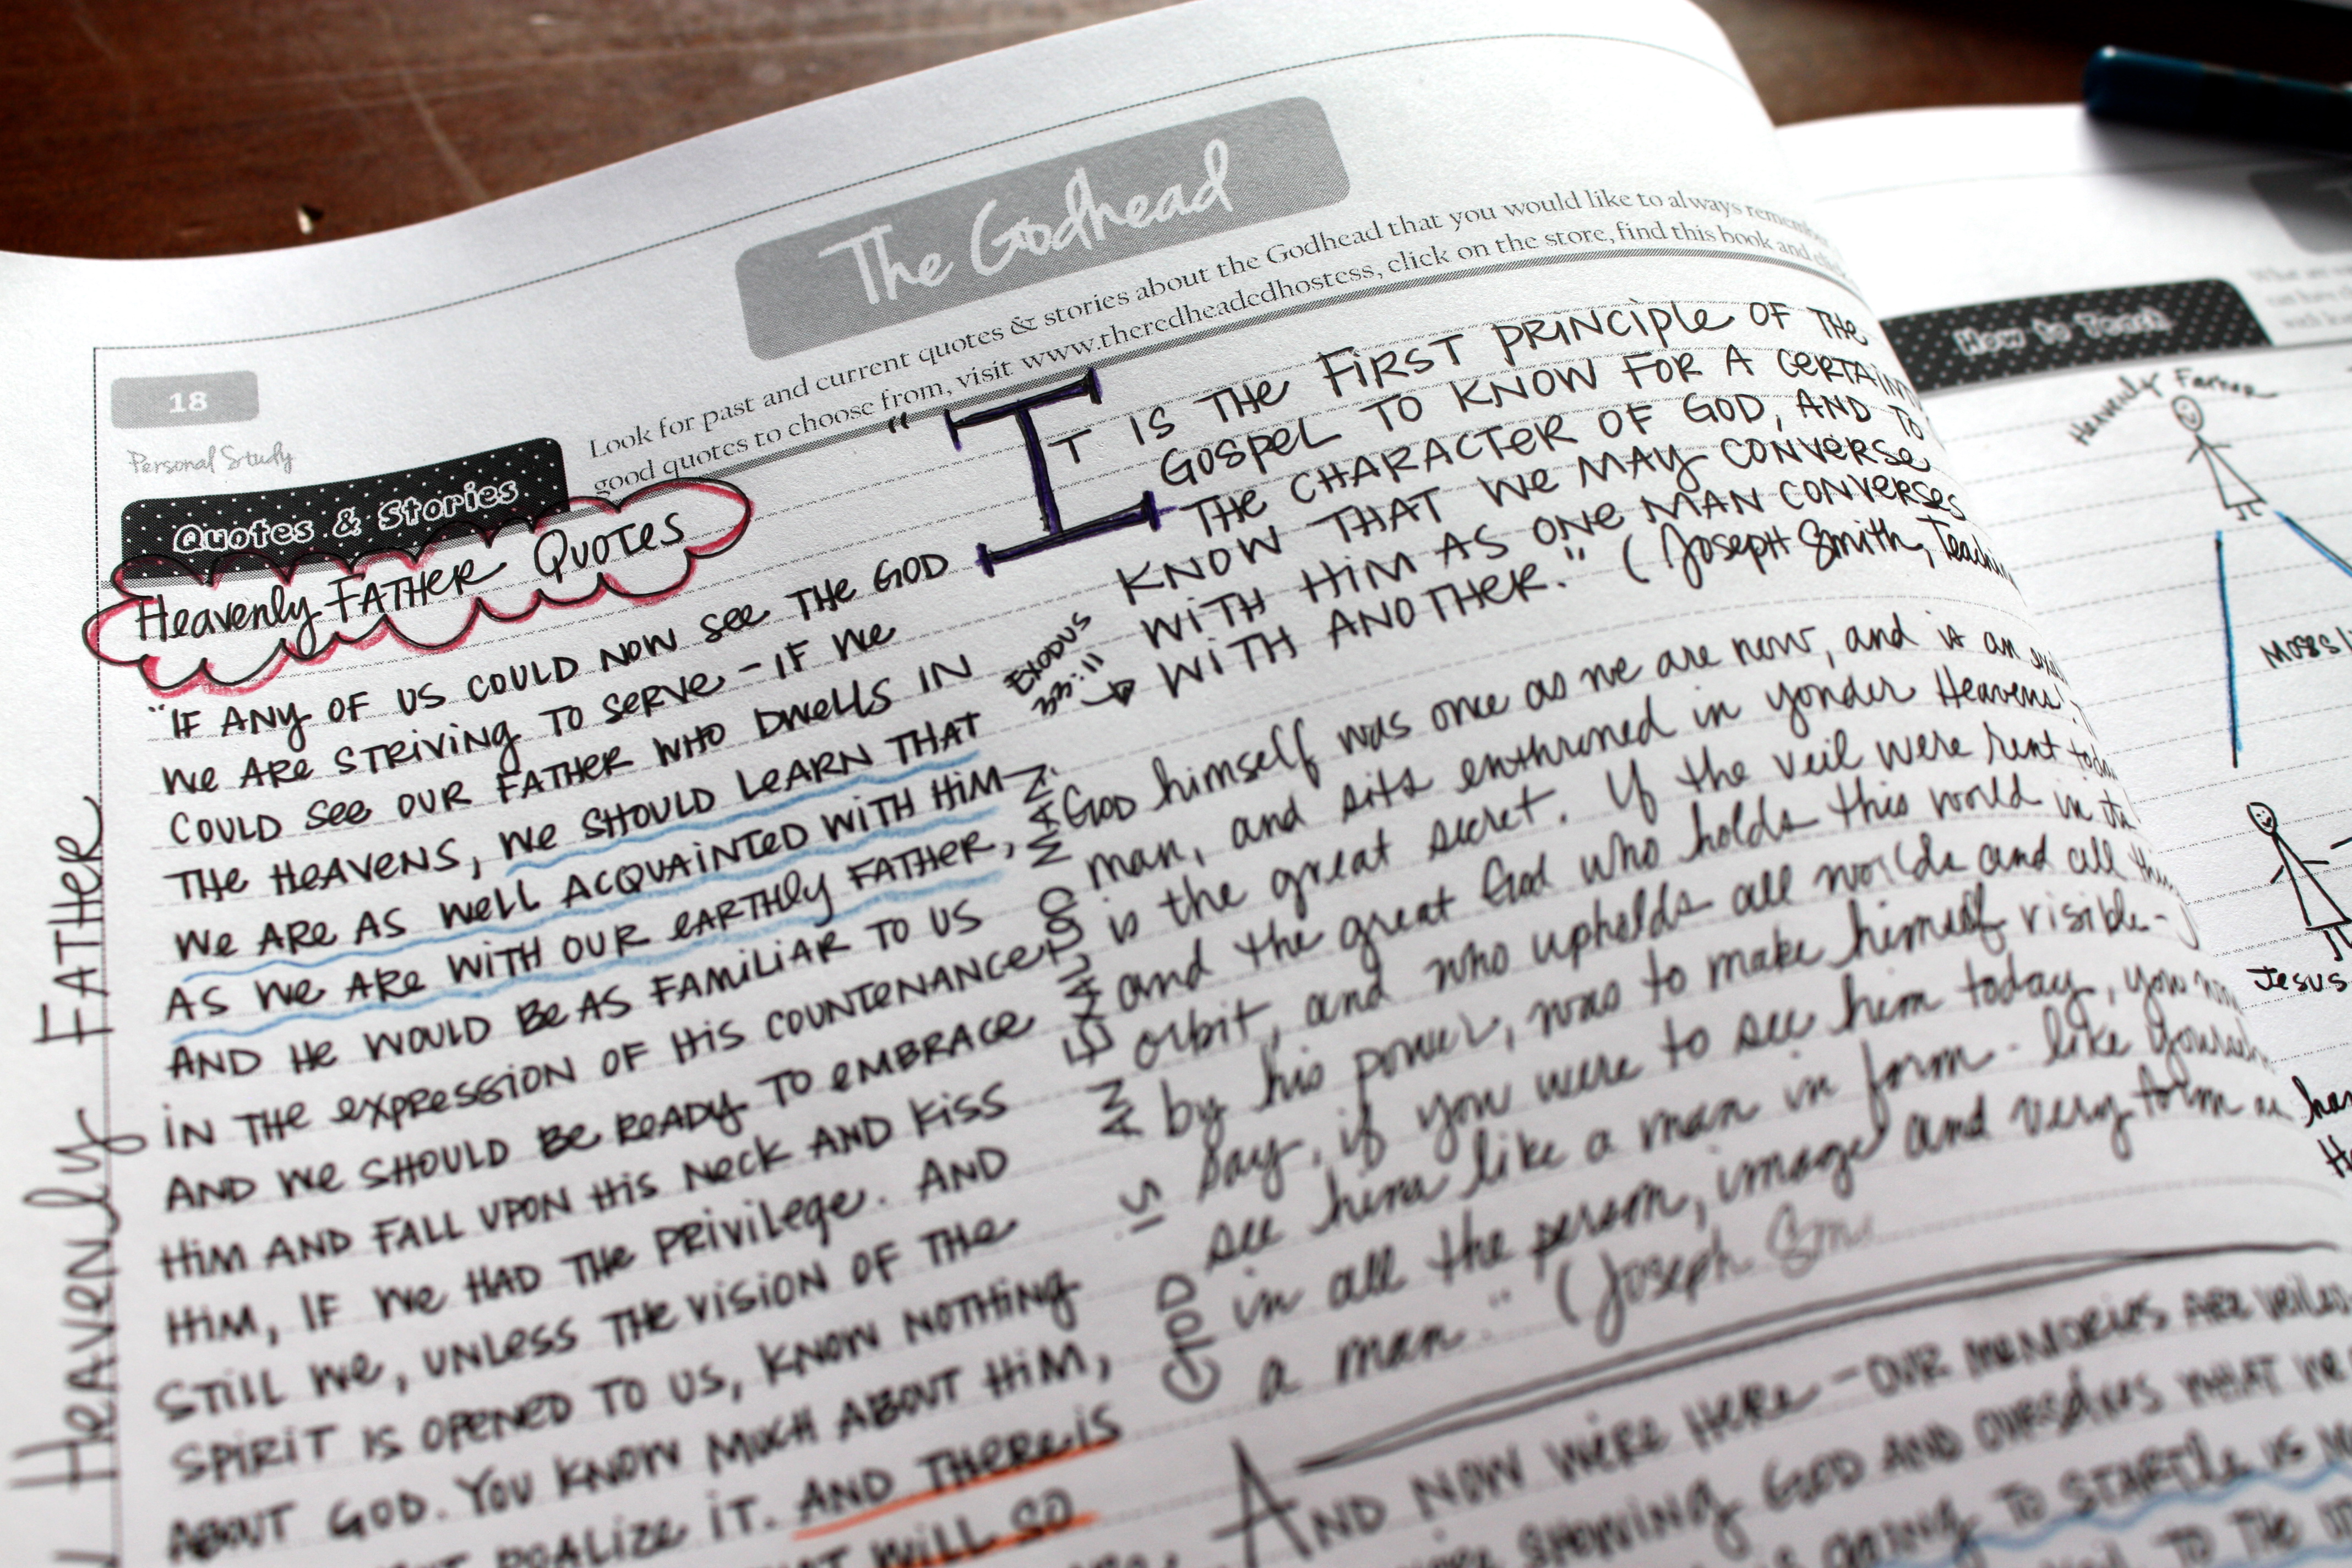 The Godhead
18
Personal Study
Quotes & Stories
Look for past and current quotes & stories about the Godhead that you would like to always
good quotes to choose from, visit www.theredheadedhostess, click on the store, find this book and
Heavenly FATHER QUOTES
"IF ANY OF US COULD NOW SEE THE GOD
WE ARE STRIVING TO SERVE - IF WE
COULD SEE OUR FATHER WHO DWELLS IN
THE HEAVENS, WE SHOULD LEARN THAT
WE ARE AS WELL ACQUAINTED WITH HIM
AS WE ARE WITH OUR EARTHLY FATHER,
AND HE WOULD BE AS FAMILIAR TO US
IN THE EXPRESSION OF HIS COUNTENANCE
AND WE SHOULD BE READY TO EMBRACE
HIM AND FALL UPON HIS NECK AND KISS
HIM, IF WE HAD THE PRIVILEGE. AND
STILL WE, UNLESS THE VISION OF THE
SPIRIT IS OPENED TO US, KNOW NOTHING
ABOUT GOD. YOU KNOW MUCH ABOUT HIM,
REALIZE IT. AND THERE IS
WILL SO
Heavenly FATHER
"IT IS THE FIRST PRINCIPLE OF THE
GOSPEL TO KNOW FOR A
THE CHARACTER OF GOD, AND TO
KNOW THAT WE MAY CONVERSE
WITH HIM AS ONE MAN CONVERSES
WITH ANOTHER." (Joseph Smith,
EXODUS
33:11
GOD IS AN EXALTED MAN.
God himself was once as we are now, and is an
man, and sits enthroned in yonder Heavens!
is the great secret. If the veil were rent
and the great God who holds this world in
orbit, and who upholds all worlds and all
by his power, was to make himself visible-
say, if you were to see him today, you
see him like a man in form - like
in all the person, image and very form as
a man." (Joseph
AND NOW WE'RE HERE - OUR MEMORIES ARE
SHOWING GOD AND OURSELVES WHAT WE
GOING TO STARTLE US
TO THE
How to Teach
Heavenly Father
Moses
Jesus